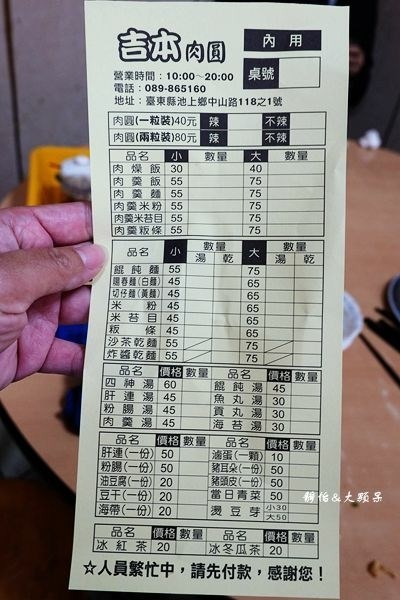 吉本肉圓 內用
營業時間：10:00～20:00 桌號
電話：089-865160
地址：臺東縣池上鄉中山路118之1號
肉圓(一粒裝)40元 辣 不辣
肉圓(兩粒裝)80元 辣 不辣
品名 小 數量 大 數量
肉燥飯 30 40
肉羹飯 55 75
肉羹麵 55 75
肉羹米粉 55 75
肉羹米苔目 55 75
肉羹粄條 55 75
品名 小 數量 大 數量
湯 乾 湯 乾
餛飩麵 55 75
陽春麵(白麵) 45 65
切仔麵(黃麵) 45 65
米粉 45 65
米苔目 45 65
粄條 45 65
沙茶乾麵 55 75
炸醬乾麵 55 75
品名 價格 數量 品名 價格 數量
四神湯 60 餛飩湯 45
肝連湯 45 魚丸湯 30
粉腸湯 45 貢丸湯 30
肉羹湯 45 海苔湯 30
品名 價格 數量 品名 價格 數量
肝連(一份) 50 滷蛋(一顆) 10
粉腸(一份) 50 豬耳朵(一份) 50
油豆腐(一份) 20 豬頭皮(一份) 50
豆干(一份) 20 當日青菜 50
海帶(一份) 20 燙豆芽 小30 大50
品名 價格 數量 品名 價格 數量
冰紅茶 20 冰冬瓜茶 20
☆人員繁忙中，請先付款，感謝您！
靜怡&大顆呆